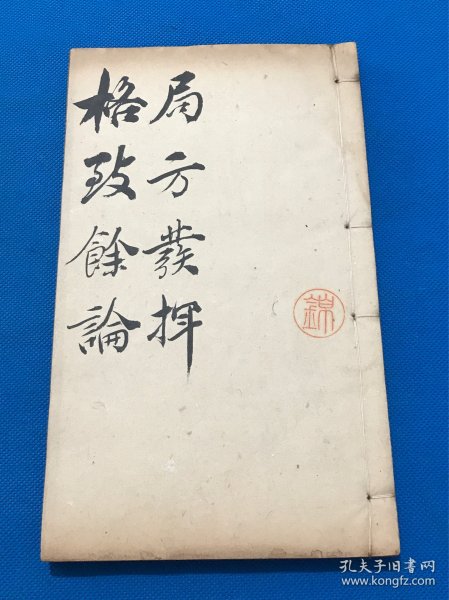 局方發揮
格致餘論
錦
孔夫子旧书网
www.kongfz.com